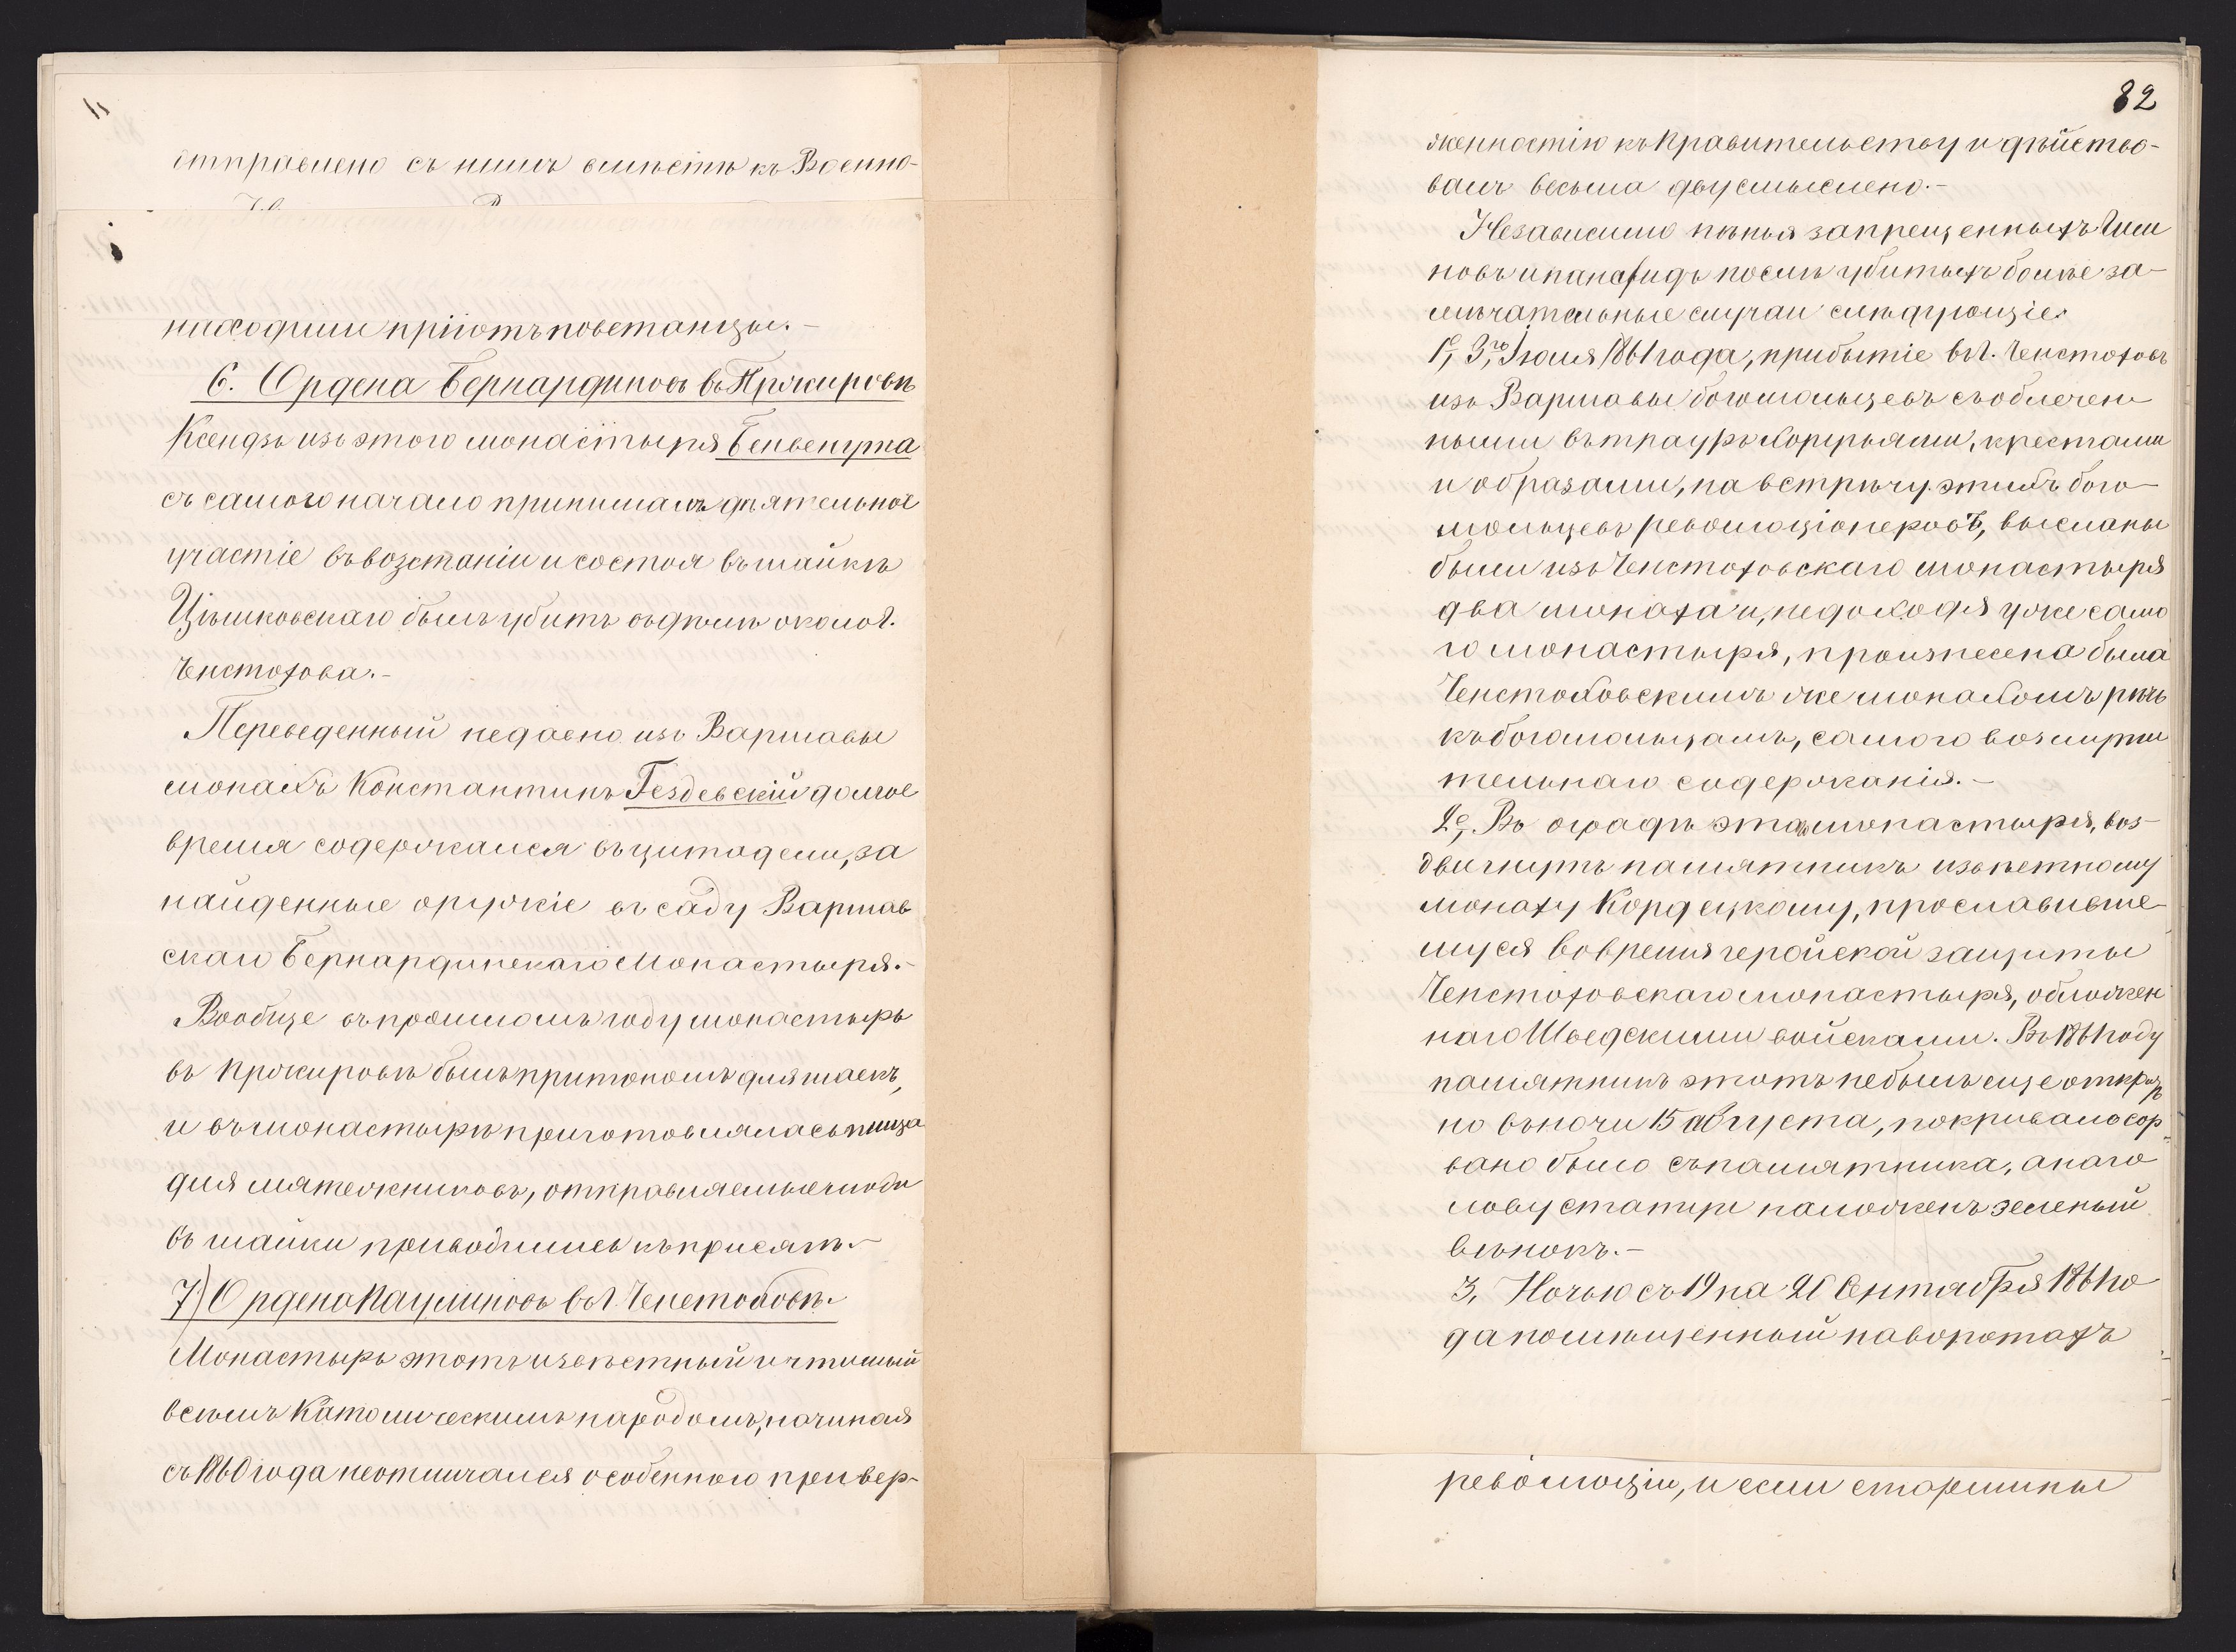 отправлено съ нимъ вмѣстѣ къ Военно-
находили пріютъ повстанцы.-
6. Ордена Бернардиновъ въ Пржировѣ
Ксендзъ изъ этого монастыря Бенвенута
съ самого начало принималъ дѣятельное
участіе въ возстаніи и состоя въ шайкѣ
Цѣшковскаго былъ убитъ въ дѣлѣ около г.
Ченстохова.-
Переведенный недавно изъ Варшавы
монахъ Константинъ Гездевскій долгое
время содержался въ цитадели, за
найденные оружіе въ саду Варшав
скаго Бернардинскаго Монастыря.-
Вообще въ прошломъ году монастырь
въ Пржировѣ былъ притономъ для шаекъ,
и въ монастырѣ приготовлялась пища
для мятежниковъ, отправляемые люди
въ шайки приводились къ присягѣ.-
7) Ордена Паулиновъ въ г. Ченстоховѣ.
Монастырь этотъ извѣстный и чтимый
всѣмъ Католическимъ народомъ, начиная
съ 1860 года неотличался особенною привер-
82
женностію къ Правительству и дѣйство-
валъ весьма двусмысленно.-
Независимо пѣнья запрещенныхъ Гим
новъ и панафидъ послѣ убитыхъ болѣе за-
мѣчательные случаи слѣдующіе:
1е, 3го Іюля 1861 года, прибытіе въ г. Ченстоховъ
изъ Варшавы богомольцевъ съ облечен
ными въ трауръ хоругвями, крестами
и образами, на встрѣчу этихъ бого-
мольцевъ революціонеровъ, высланы
были изъ Ченстоховскаго монастыря
два монаха и, недоходя уже само
го монастыря, произнесена была
Ченстоховскимъ же монахомъ рѣчь
къ богомольцамъ, самого возмути
тельнаго содержанія.-
2е, Въ оградѣ этаго монастыря, воз-
двигнутъ памятникъ извѣстному
монаху Кордецкому, прославивше-
муся во время геройской защиты
Ченстоховскаго монастыря, обложен
наго Шведскими войсками. Въ 1861 году
памятникъ этотъ небылъ еще открытъ
но въ ночи 15 августа, покривало сор-
вано было съ памятника, а на го
лову статуи наложенъ зеленый
вѣнокъ.-
3, Ночью съ 19 на 20 Сентября 1861 го
да помѣщенный на воротахъ
революціи, и если старшины